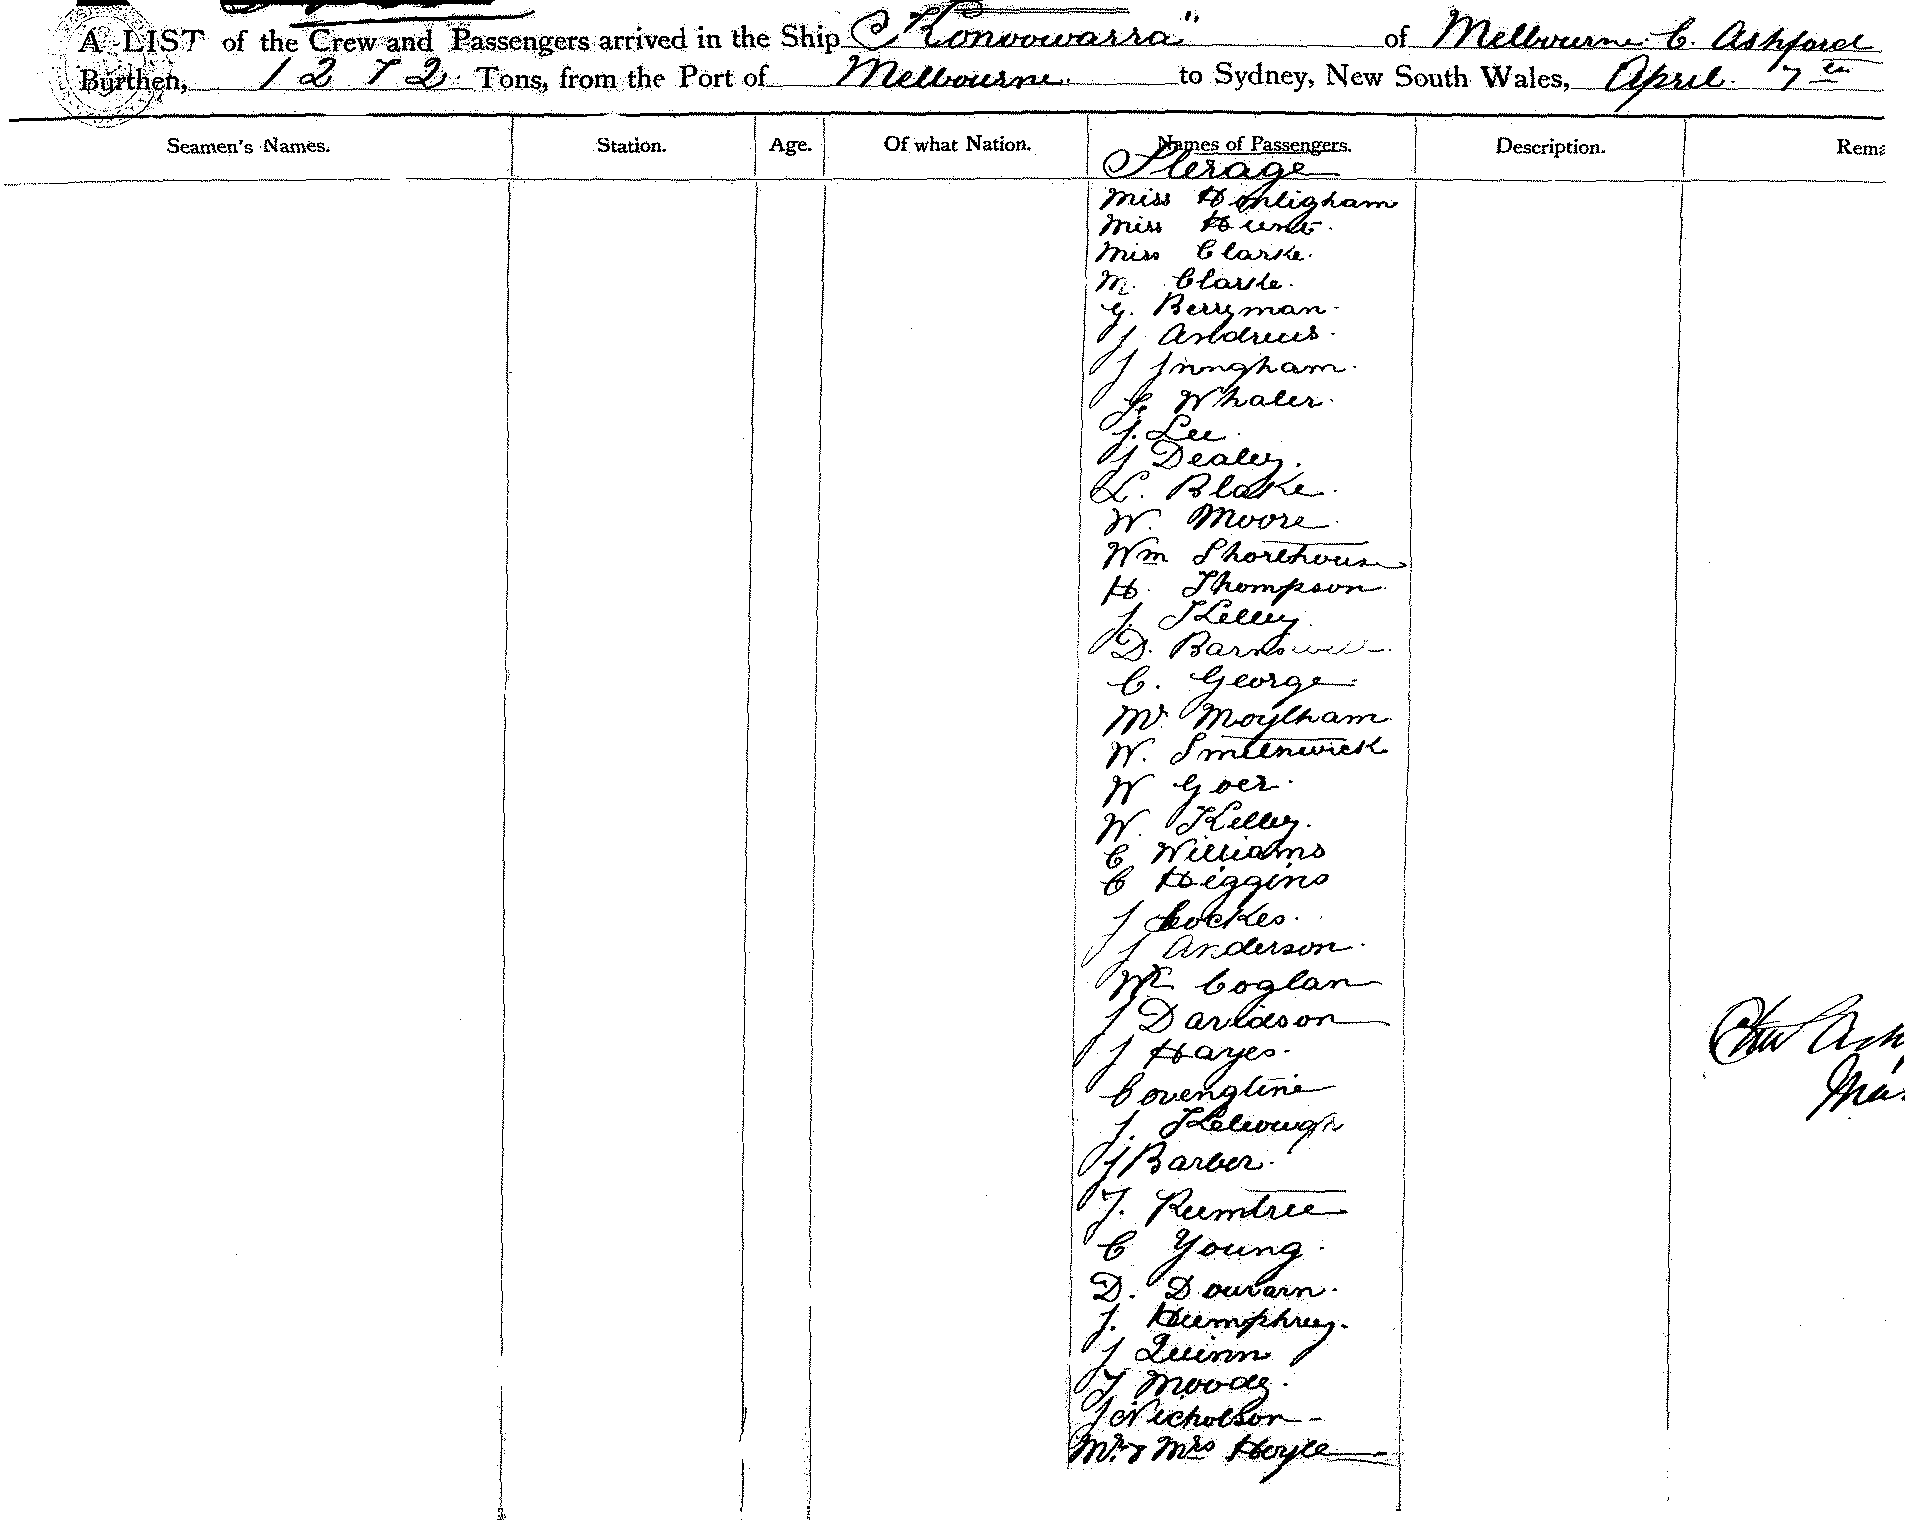 A LIST of the Crew and Passengers arrived in the Ship "Konoowarra" of Melbourne. C. Ashford
Burthen, 1272 Tons, from the Port of Melbourne. to Sydney, New South Wales, April 7th
Seamen's Names. Station. Age. Of what Nation. Names of Passengers. Description. Rema
Sterage
Miss
Miss Hunt.
Miss Clarke.
M. Clarke.
G. Berryman.
J Andrews.
J
Whaler.
J. Lee.
J Dealey.
L. Blake.
W. Moore.
Wm Shorthouse
H. Thompson
J. Kelley.
D.
C. George.
Moyltham
W. Smithwick
W Goer.
W. Kelley.
C Williams
C Higgins
J Cockes.
J Anderson.
Coglan
J Davidson
J Hayes.
J.
J Barber.
T. Rumtree
C Young.
D.
J. Humphrey.
J Quinn
T Moody.
J Nicholson
Mr. & Mrs Hoyle